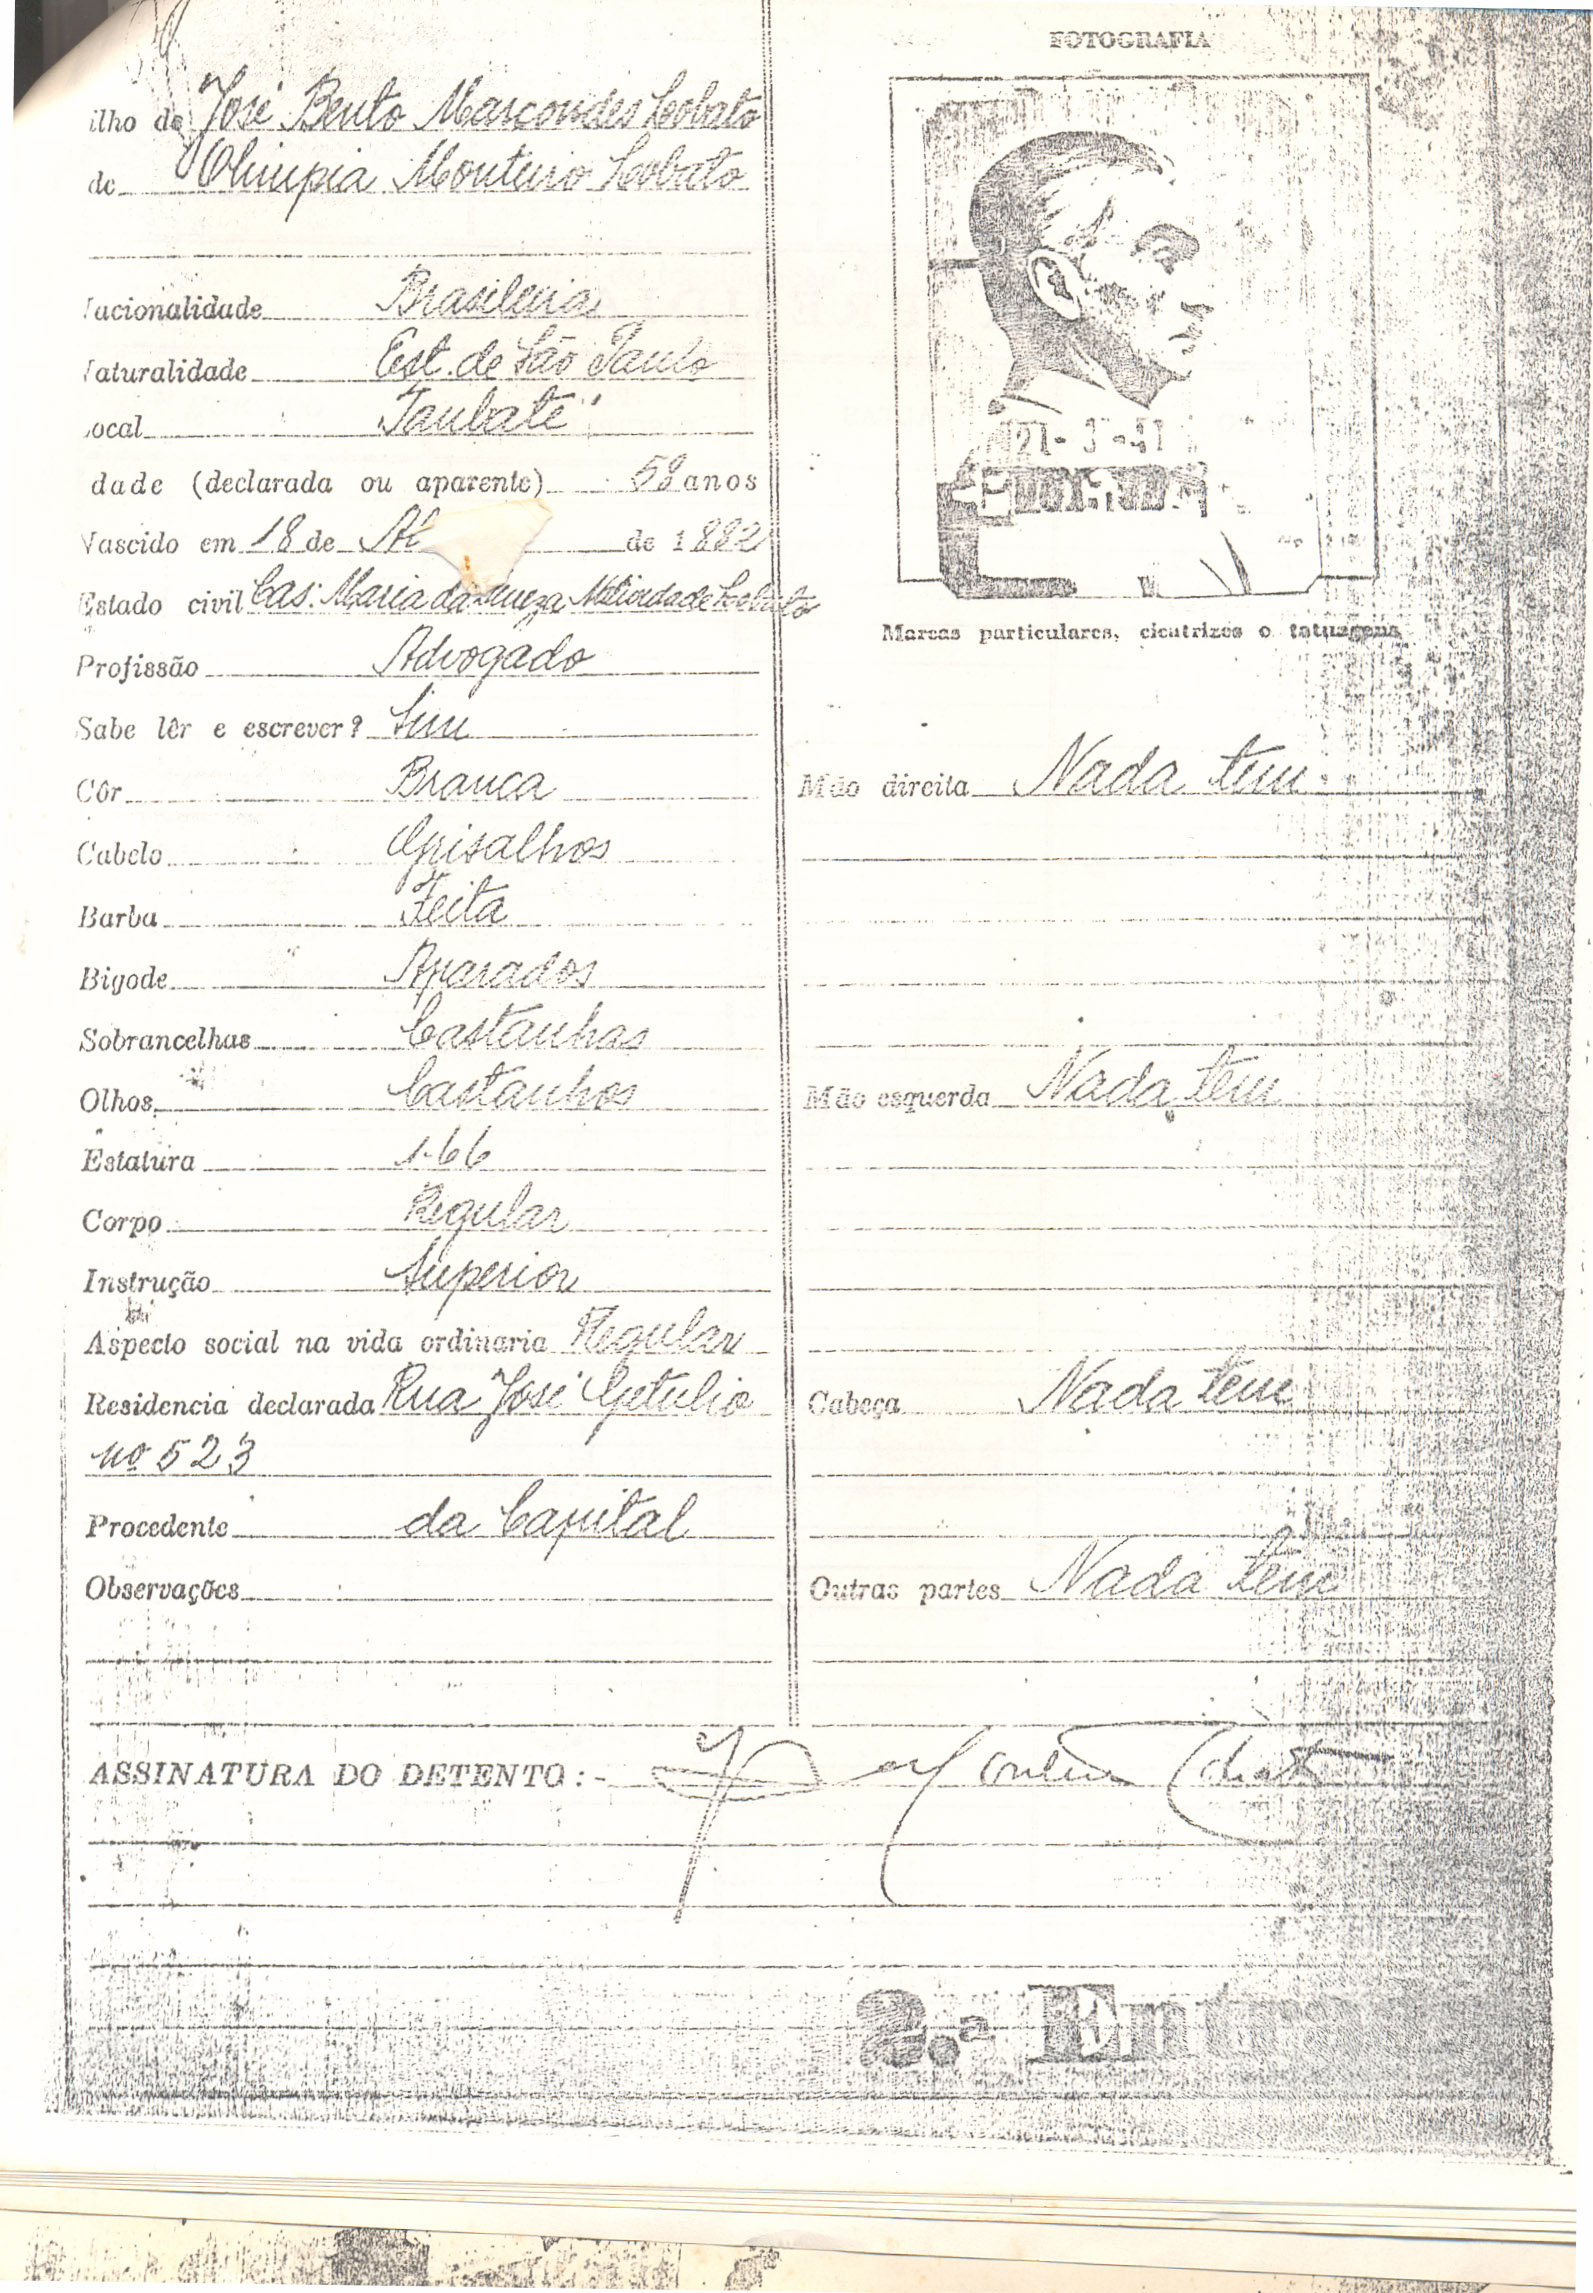 ilho de José Bento Marcondes Lobato
de Olimpia Monteiro Lobato
acionalidade Brasileira
aturalidade Est. de São Paulo
ocal Taubaté
dade (declarada ou aparente) 58 anos
ascido em 18 de Ab de 1882
Estado civil Cas: Maria da Lobato
Profissão Advogado
Sabe lêr e escrever? Sim
Côr Branca
Cabelo Grisalhos
Barba Feita
Bigode Aparados
Sobrancelhas Castanhas
Olhos Castanhos
Estatura 1.66
Corpo Regular
Instrução Superior
Aspecto social na vida ordinaria Regular
Residencia declarada Rua José Getulio
nº 523
Procedente da Capital
Observações
FOTOGRAFIA
Marcas particulares, cicatrizes e tatuagens
Mão direita Nada tem
Mão esquerda Nada tem
Cabeça Nada tem
Outras partes Nada tem
ASSINATURA DO DETENTO:- Monteiro Lobato
2.ª Entr